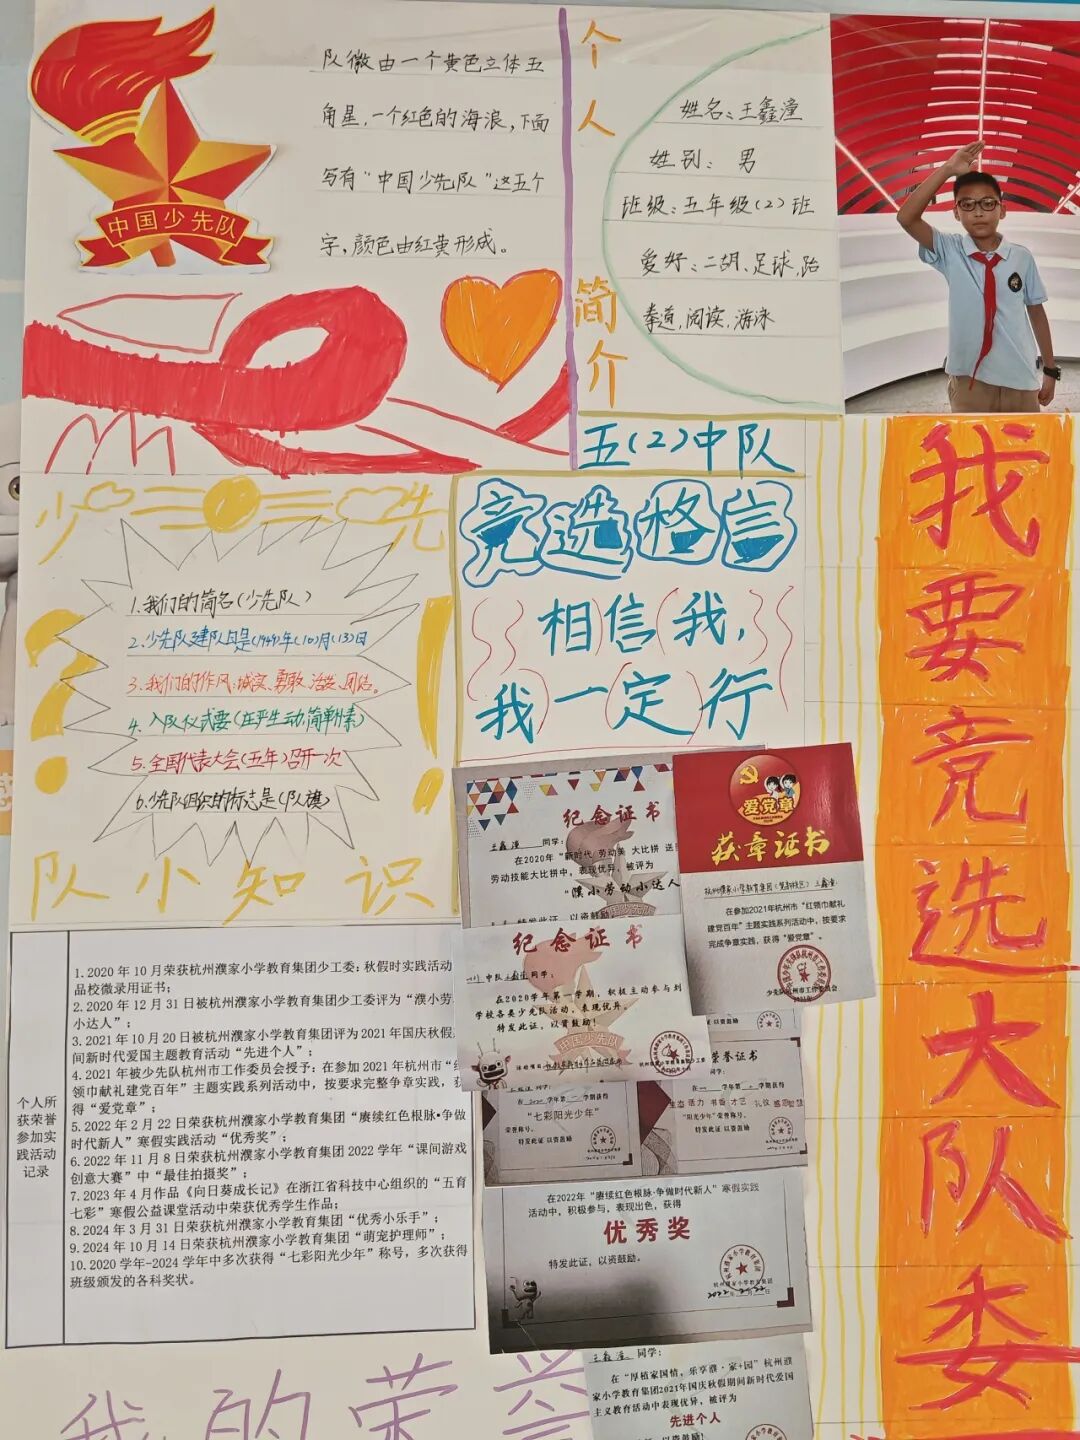 中国少先队
队徽由一个黄色立体五
角星，一个红色的海浪，下面
写有“中国少先队”这五个
字，颜色由红黄形成。
个人简介
姓名：王鑫潼
姓别：男
班级：五年级（2）班
爱好：二胡、足球，跆
拳道，阅读，游泳
五（2）中队
我要竞选大队委
少先
1、我们的简名（少先队）
2、少先队建队日是（1949）年（10）月（13）日
3、我们的作风：诚实、勇敢、活泼、团结。
4、入队仪式要（庄严生动，简单朴素）
5、全国代表大会（五年）召开一次
6、少先队组织的标志是（队旗）
队小知识
竞选格言
相信我，
我一定行
个人所
获荣誉
参加实
践活动
记录
1. 2020 年 10 月荣获杭州濮家小学教育集团少工委：秋假时实践活动
品校微录用证书；
2. 2020 年 12 月 31 日被杭州濮家小学教育集团少工委评为“濮小劳
小达人”；
3. 2021 年 10 月 20 日被杭州濮家小学教育集团评为 2021 年国庆秋假
间新时代爱国主题教育活动“先进个人”；
4. 2021 年被少先队杭州市工作委员会授予：在参加 2021 年杭州市“红
领巾献礼建党百年”主题实践系列活动中，按要求完整争章实践，获
得“爱党章”；
5. 2022 年 2 月 22 日荣获杭州濮家小学教育集团“赓续红色根脉•争做
时代新人”寒假实践活动“优秀奖”；
6. 2022 年 11 月 8 日荣获杭州濮家小学教育集团 2022 学年“课间游戏
创意大赛”中“最佳拍摄奖”；
7. 2023 年 4 月作品《向日葵成长记》在浙江省科技中心组织的“五育
七彩”寒假公益课堂活动中荣获优秀学生作品；
8. 2024 年 3 月 31 日荣获杭州濮家小学教育集团“优秀小乐手”；
9. 2024 年 10 月 14 日荣获杭州濮家小学教育集团“萌宠护理师”；
10. 2020 学年-2024 学年中多次获得“七彩阳光少年”称号，多次获得
班级颁发的各科奖状。
纪念证书
王鑫潼 同学：
在2020年“新时代 劳动美 大比拼 送
劳动技能大比拼中，表现优异，被评为
“濮小劳动小达人
特发此证，以资鼓励
中国少先队
爱党章
获章证书
杭州濮家小学教育集团 王鑫潼：
在参加2021年杭州市“红领巾献礼
建党百年”主题实践系列活动中，按要求
完成争章实践，获得“爱党章”。
少先队杭州市工作委员会
纪念证书
中队 王鑫潼 同学：
在2020学年第一学期，积极主动参与到
学校各类少先队活动，表现优异。
特发此证，以资鼓励！
中国少先队
以资鼓励
学期获得
“七彩阳光少年”
荣誉称号。
特发此证 以资鼓励
荣誉证书
同学：
学年第 学期获得
“阳光少年”荣誉称号。
特发此证 以资鼓励
在2022年“赓续红色根脉·争做时代新人”寒假实践
活动中，积极参与，表现出色，获得
优秀奖
特发此证，以资鼓励。
杭州濮家小学教育集团
2022年2月22日
王鑫潼 同学：
在“厚植家国情，乐享濮·家+园”杭州濮
家小学教育集团2021年国庆秋假期间新时代爱国
主义教育活动中表现优异，被评为
先进个人
特发此证，以资鼓励！
我的荣誉